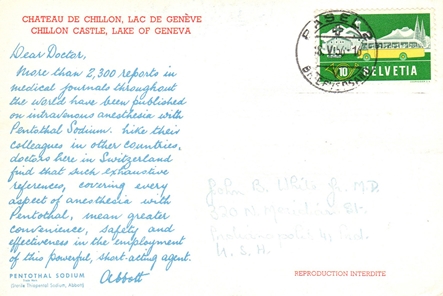 CHATEAU DE CHILLON, LAC DE GENÈVE
CHILLON CASTLE, LAKE OF GENEVA
Dear Doctor,
More than 2,300 reports in
medical journals throughout
the world have been published
on intravenous anesthesia with
Pentothal Sodium. Like their
colleagues in other countries,
doctors here in Switzerland
find that such exhaustive
references, covering every
aspect of anesthesia with
Pentothal, mean greater
convenience, safety and
effectiveness in the employment
of this powerful, short-acting agent.
Abbott
PENTOTHAL SODIUM
(Sterile Thiopental Sodium, Abbott)
BASEL 2
10 HELVETIA
John B. White Jr. M.D.
320 N. Meridian St.
Indianapolis 4, Ind.
U.S.A.
REPRODUCTION INTERDITE